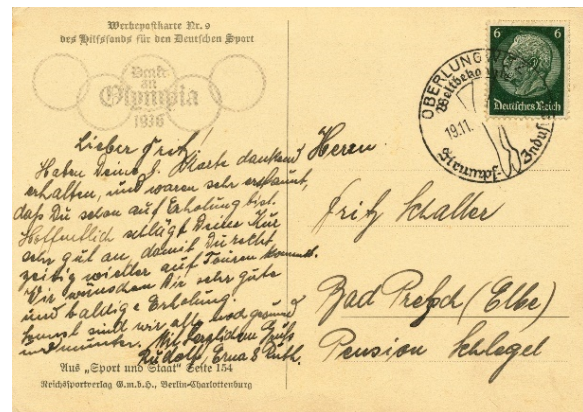 Werbepostkarte Nr. 9
des Hilfsfonds für den Deutschen Sport
Denkt
an
Olympia
1936
Lieber Fritz,
Haben Deine l. Karte dankend
erhalten, und waren sehr erstaunt,
daß Du schon auf Erholung bist.
Hoffentlich schlägt Deine Kur
sehr gut an, damit Du recht
zeitig wieder auf Touren kommst.
Wir wünschen Dir sehr gute
und baldige Erholung.
Sonst sind wir alle noch gesund
und munter. Mit herzlichem Gruß
Rudolf, Erna & Ruth.
Aus „Sport und Staat" Seite 154
Reichssportverlag G.m.b.H., Berlin-Charlottenburg
OBERLUNG
Weltbeka
19.11.
Strumpf-Indus
6 6
Deutsches Reich
Herrn
Fritz Schaller
Bad Pretzsch (Elbe)
Pension Schlegel